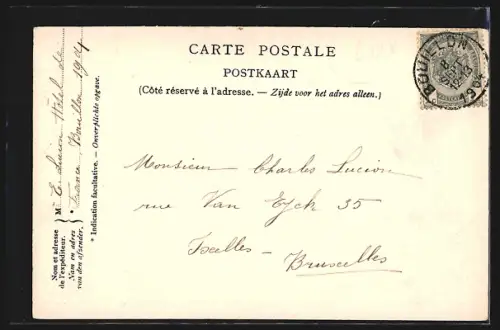 CARTE POSTALE
POSTKAART
(Côté réservé à l'adresse. — Zijde voor het adres alleen.)
BOUILLON
8
SEPT
Monsieur Charles Lucion
rue Van Eyck 35
Ixelles -
Bruxelles
Nom et adresse de l'expéditeur.
Naam en adres van den afzender.
M E. Lucion Hôtel de
France Bouillon 1904
* Indication facultative. — Onverplichte opgave.